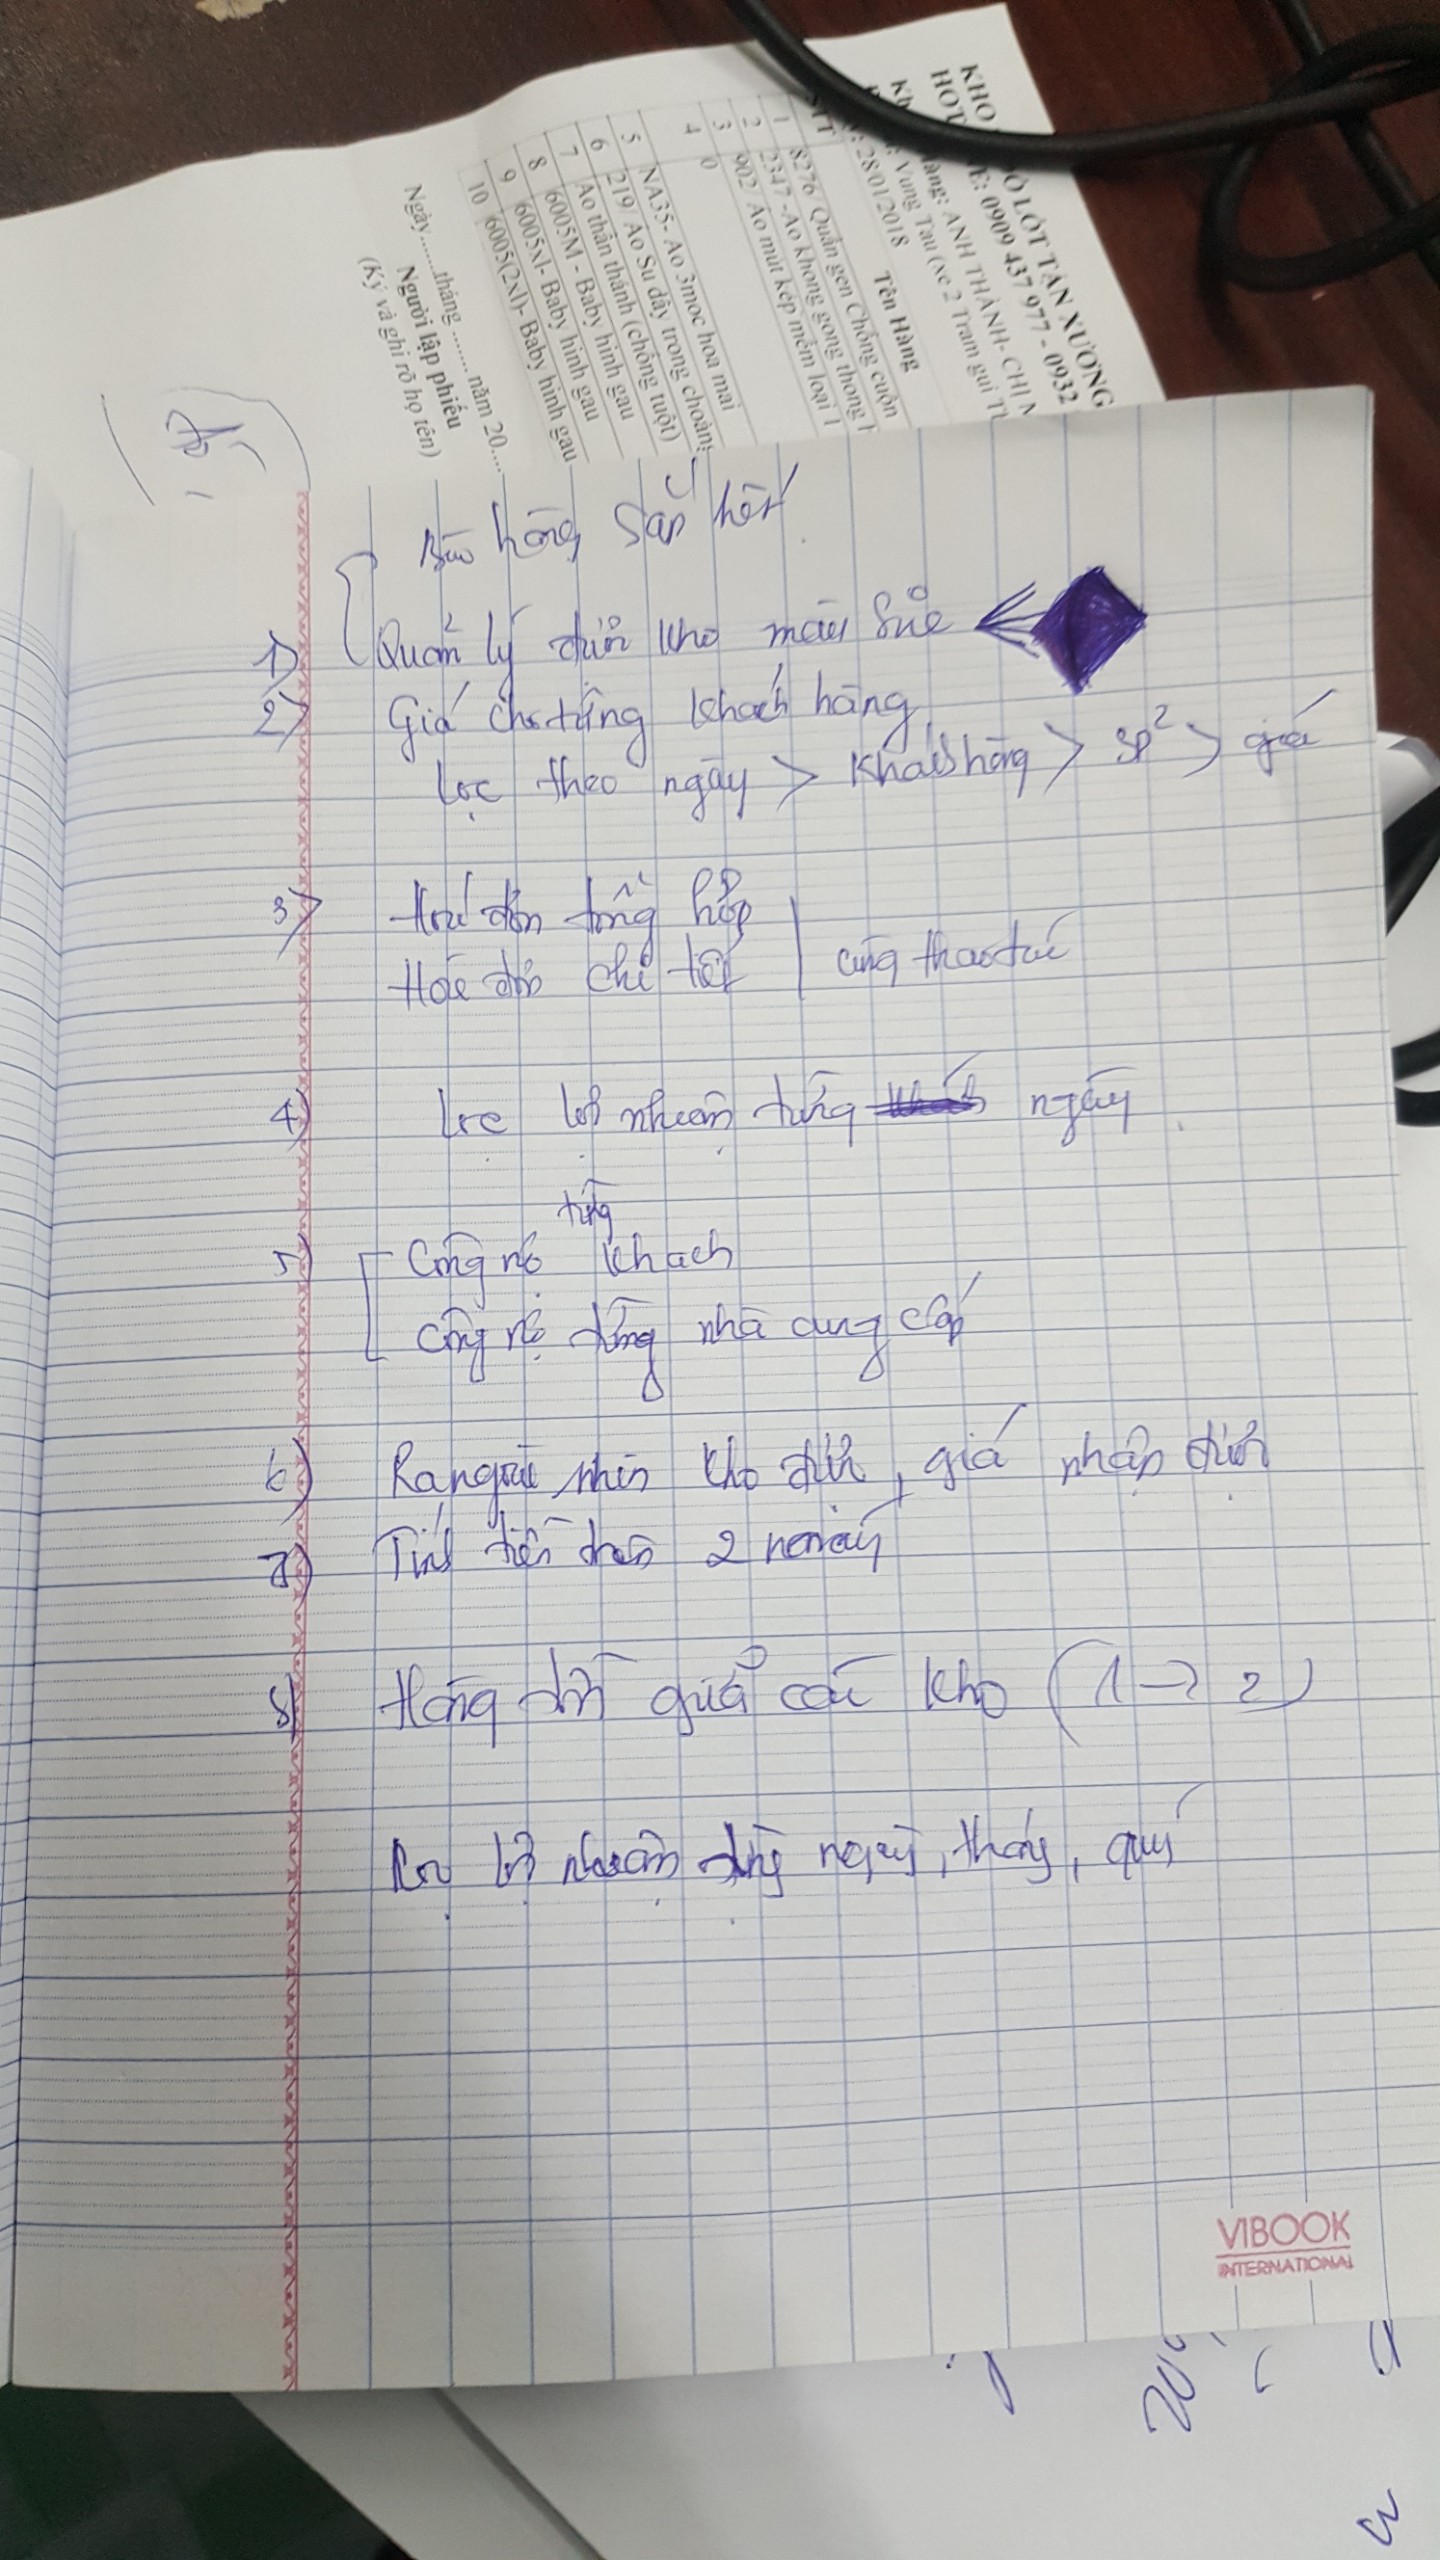 KHO ĐỒ LÓT TÂN XƯƠNG
HOT E: 0909 437 977 - 0932
Kh àng: ANH THÀNH- CHỊ
Vung Tau (xe 2 Tram gui
: 28/01/2018
Tên Hàng
1 8276/ Quần gen Chống cuộn
2 2347 -Ao không gong thong
3 902/ Áo mút kép mềm loại 1
4 0
5 NA35- Ao 3moc hoa mai
6 219/ Áo Su dây trong choàng
7 Ao thần thánh (chống tuột)
8 6005M - Baby hinh gau
9 6005xl- Baby hinh gau
10 6005(2xl)- Baby hinh gau
Ngày......tháng ........ năm 20....
Người lập phiếu
(Ký và ghi rõ họ tên)
Báo hàng sắp hết
1) Quản lý được kho màu size
2) Giá cho từng khách hàng
lọc theo ngày > khách hàng > sp² > giá
3) Hoá đơn tổng hợp
Hoá đơn chi tiết cùng thao tác
4) lọc lợi nhuận từng ngày
từng
5) Công nợ khách
công nợ từng nhà cung cấp
6) Ra ngoài nhìn kho được, giá nhận được
7) Tính tiền trên 2 máy
8) Hàng đổi giữa các kho (1 → 2)
lọc lợi nhuận từng ngày, tháng, quý
VIBOOK
INTERNATIONAL